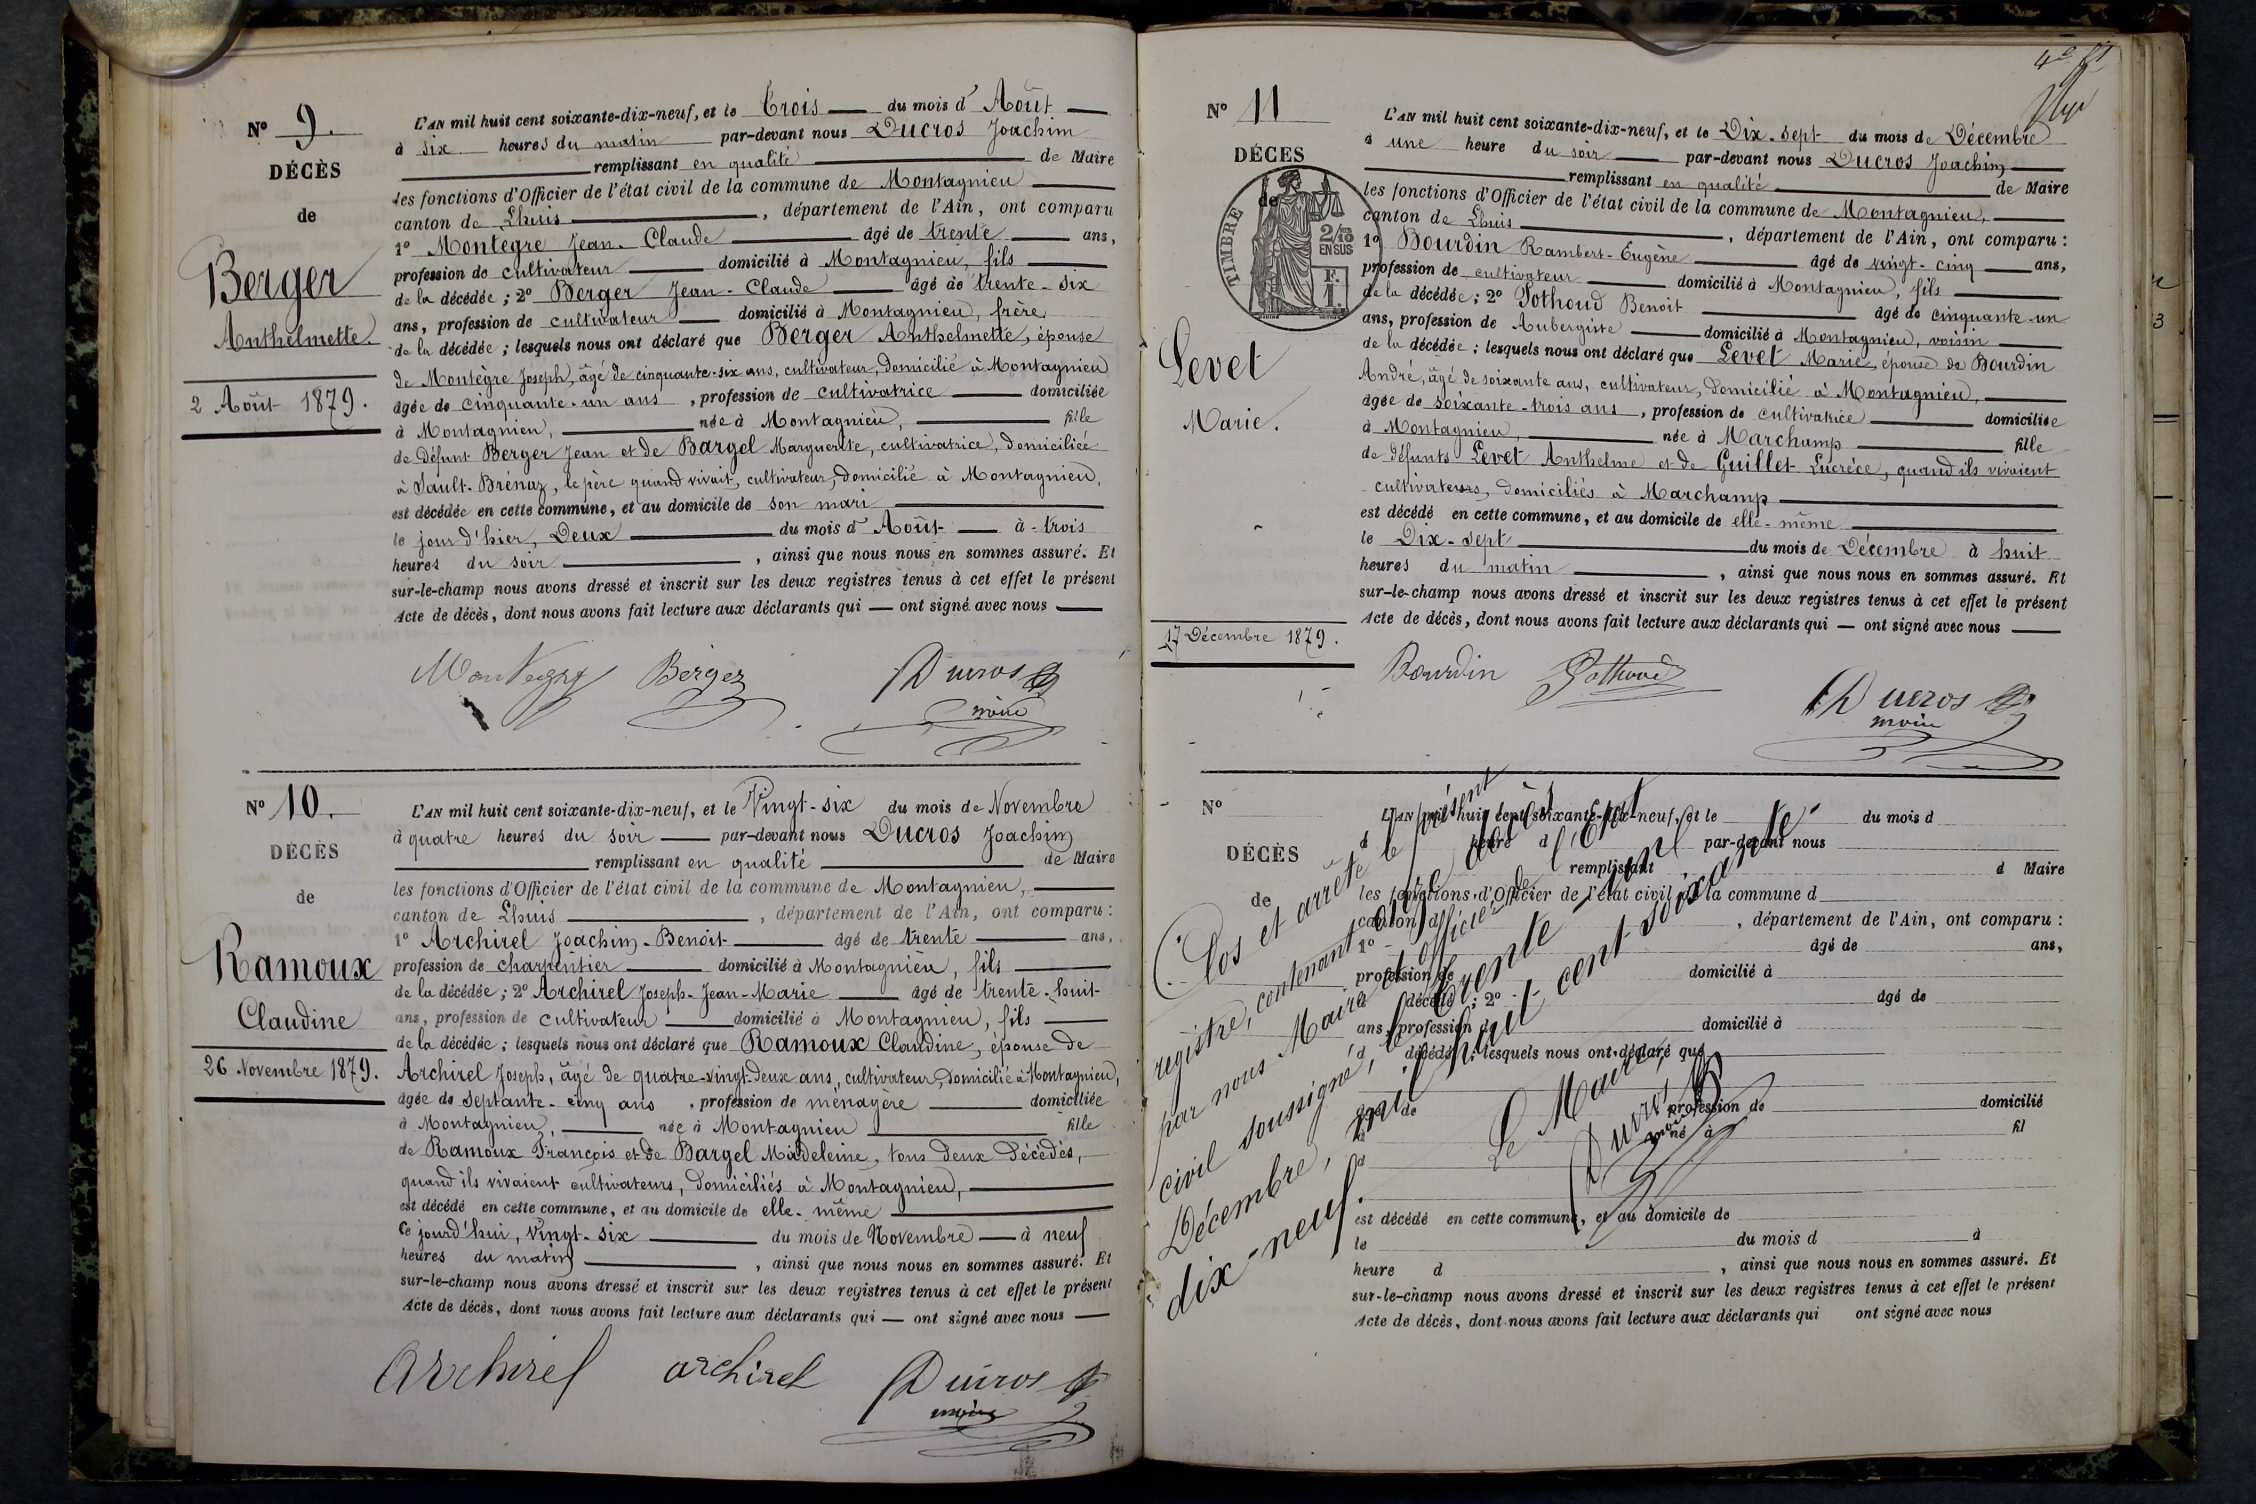 N° 9.
DÉCÈS
de
Berger
Anthelmette
2 Août 1879.
L'AN mil huit cent soixante-dix-neuf, et le Trois du mois d' Août
à six heures du matin par-devant nous Ducros Joachim
remplissant en qualité de Maire
les fonctions d'Officier de l'état civil de la commune de Montagnieu
canton de Lhuis, département de l'Ain, ont comparu
1° Montègre Jean-Claude âgé de trente ans,
profession de cultivateur domicilié à Montagnieu, fils
de la décédée; 2° Berger Jean-Claude âgé de trente-six
ans, profession de cultivateur domicilié à Montagnieu, frère
de la décédée; lesquels nous ont déclaré que Berger Anthelmette, épouse
de Montègre Joseph, âgé de cinquante-six ans, cultivateur, domicilié à Montagnieu
âgée de cinquante-un ans, profession de cultivatrice domiciliée
à Montagnieu, née à Montagnieu, fille
de défunt Berger Jean et de Bargel Marguerite, cultivatrice, domiciliée
à Sault-Brénaz, le père quand vivait, cultivateur, domicilié à Montagnieu,
est décédée en cette commune, et au domicile de son mari
le jour d'hier, Deux du mois d' Août à trois
heures du soir, ainsi que nous nous en sommes assuré. Et
sur-le-champ nous avons dressé et inscrit sur les deux registres tenus à cet effet le présent
Acte de décès, dont nous avons fait lecture aux déclarants qui — ont signé avec nous
Montegre Berger Ducros
maire
N° 10.
DÉCÈS
de
Ramoux
Claudine
26 Novembre 1879.
L'AN mil huit cent soixante-dix-neuf, et le Vingt-six du mois de Novembre
à quatre heures du soir par-devant nous Ducros Joachim
remplissant en qualité de Maire
les fonctions d'Officier de l'état civil de la commune de Montagnieu,
canton de Lhuis, département de l'Ain, ont comparu:
1° Archirel Joachim-Benoit âgé de trente ans,
profession de charpentier domicilié à Montagnieu, fils
de la décédée; 2° Archirel Joseph-Jean-Marie âgé de trente-huit
ans, profession de cultivateur domicilié à Montagnieu, fils
de la décédée; lesquels nous ont déclaré que Ramoux Claudine, épouse de
Archirel Joseph, âgé de quatre-vingt-deux ans, cultivateur, domicilié à Montagnieu,
âgée de septante-cinq ans, profession de ménagère domiciliée
à Montagnieu, née à Montagnieu fille
de Ramoux François et de Bargel Madeleine, tous deux décédés,
quand ils vivaient cultivateurs, domiciliés à Montagnieu,
est décédé en cette commune, et au domicile de elle-même
Ce jourd'hui, Vingt-six du mois de Novembre à neuf
heures du matin, ainsi que nous nous en sommes assuré. Et
sur-le-champ nous avons dressé et inscrit sur les deux registres tenus à cet effet le présent
Acte de décès, dont nous avons fait lecture aux déclarants qui — ont signé avec nous
Archirel archirel Ducros
maire
N° 11
DÉCÈS
de
TIMBRE
2/10
EN SUS
F.
1.
Levet
Marie.
17 Décembre 1879.
L'AN mil huit cent soixante-dix-neuf, et le Dix-sept du mois de Décembre
à une heure du soir par-devant nous Ducros Joachim
remplissant en qualité de Maire
les fonctions d'Officier de l'état civil de la commune de Montagnieu,
canton de Lhuis, département de l'Ain, ont comparu:
1° Bourdin Rambert-Eugène âgé de vingt-cinq ans,
profession de cultivateur domicilié à Montagnieu, fils
de la décédée; 2° Pothoud Benoit âgé de cinquante-un
ans, profession de Aubergiste domicilié à Montagnieu, voisin
de la décédée; lesquels nous ont déclaré que Levet Marie, épouse de Bourdin
André, âgé de soixante ans, cultivateur, domicilié à Montagnieu,
âgée de soixante-trois ans, profession de cultivatrice domiciliée
à Montagnieu, née à Marchamp fille
de défunts Levet Anthelme et de Guillet Lucrèce, quand ils vivaient
cultivateurs, domiciliés à Marchamp
est décédé en cette commune, et au domicile de elle-même
le Dix-sept du mois de Décembre à huit
heures du matin, ainsi que nous nous en sommes assuré. Et
sur-le-champ nous avons dressé et inscrit sur les deux registres tenus à cet effet le présent
Acte de décès, dont nous avons fait lecture aux déclarants qui — ont signé avec nous
Bourdin Pothoud
Ducros
maire
N°
DÉCÈS
de
L'AN mil huit cent soixante-dix-neuf, et le du mois d
à heure d par-devant nous
remplissant d Maire
les fonctions d'Officier de l'état civil de la commune d
canton d, département de l'Ain, ont comparu:
1° âgé de ans,
profession de domicilié à
d décédé; 2° âgé de
ans, profession de domicilié à
d décédé; lesquels nous ont déclaré que
âgé de profession de domicilié
à né à fil
d
est décédé en cette commune, et au domicile de
le du mois d à
heure d, ainsi que nous nous en sommes assuré. Et
sur-le-champ nous avons dressé et inscrit sur les deux registres tenus à cet effet le présent
Acte de décès, dont nous avons fait lecture aux déclarants qui ont signé avec nous
Clos et arrêté le présent
registre, contenant onze actes
par nous Maire et officier de l'État
civil soussigné, le trente-un
Décembre, mil huit cent soixante-
dix-neuf.
Le Maire,
Ducros
maire